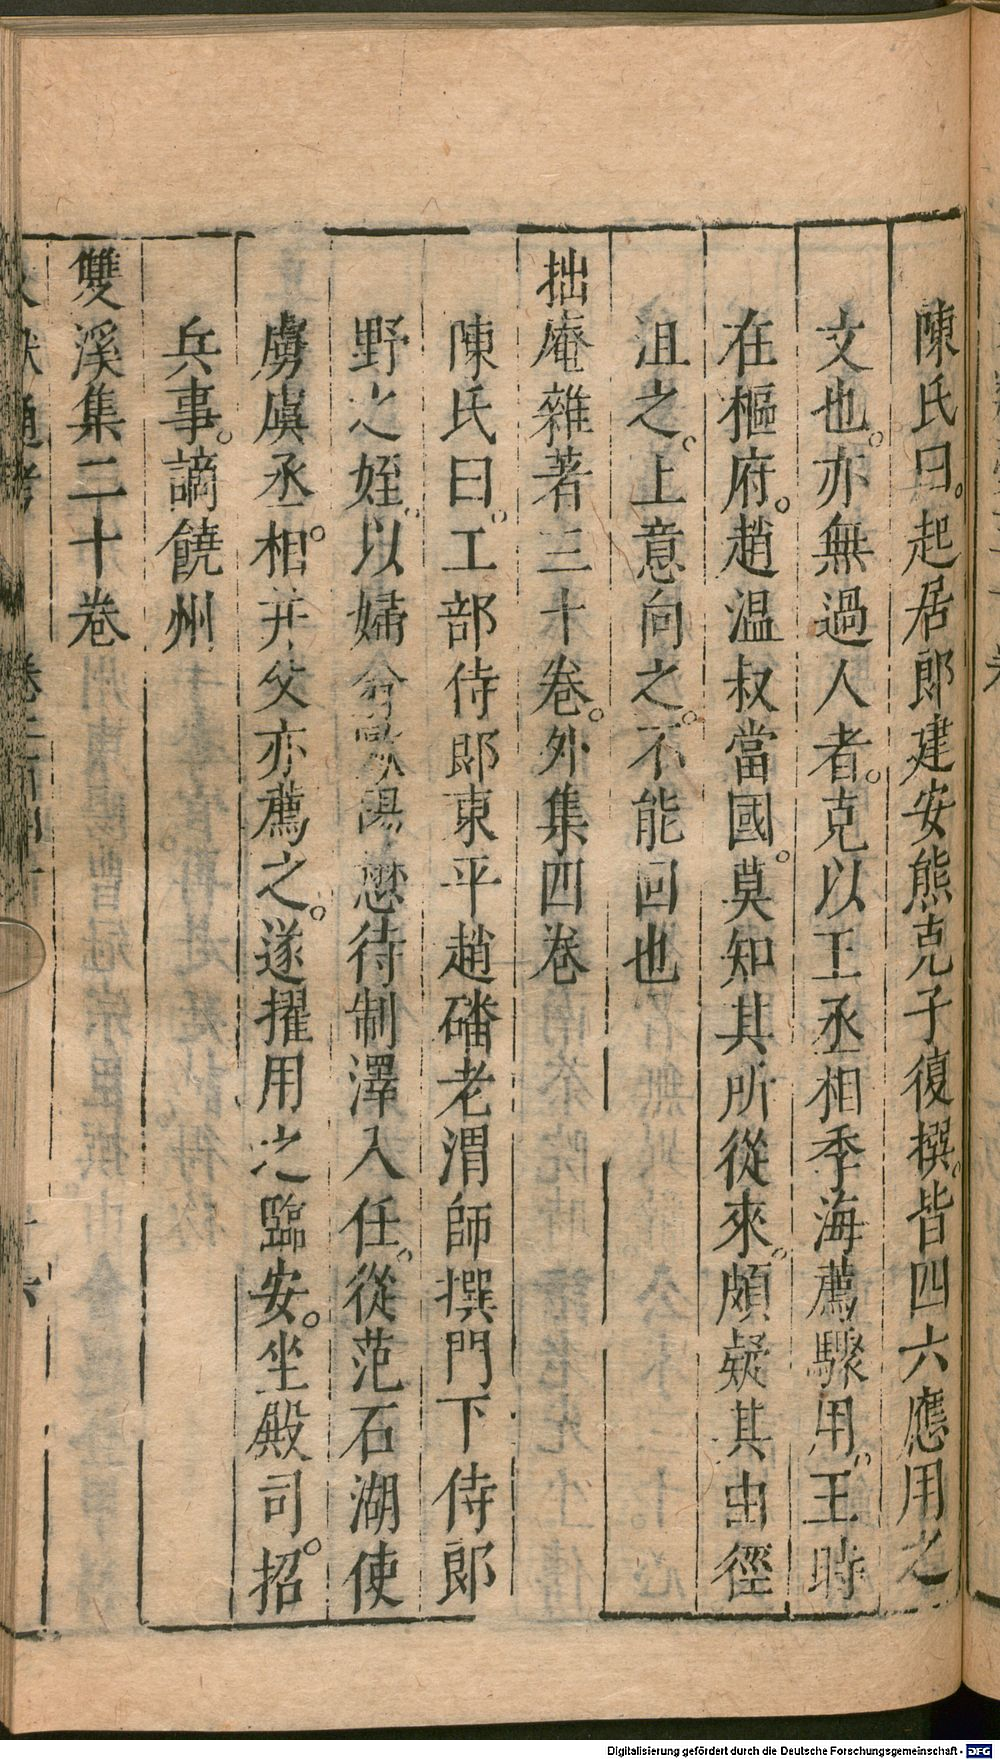 陳氏曰。起居郎建安熊克子復撰。皆四六應用之
文也。亦無過人者。克以王丞相季海薦驟用。王時
在樞府。趙温叔當國。莫知其所從來。頗疑其由徑
沮之。上意向之。不能回也
拙庵雜著三十卷。外集四卷
陳氏曰。工部侍郎東平趙磻老渭師撰門下侍郎
野之姪。以婦翁歐陽懋待制澤入任。從范石湖使
虜虞丞相。并父亦薦之。遂擢用之臨安。坐殿司。招
兵事。謫饒州
雙溪集二十卷
Digitalisierung gefördert durch die Deutsche Forschungsgemeinschaft - DFG